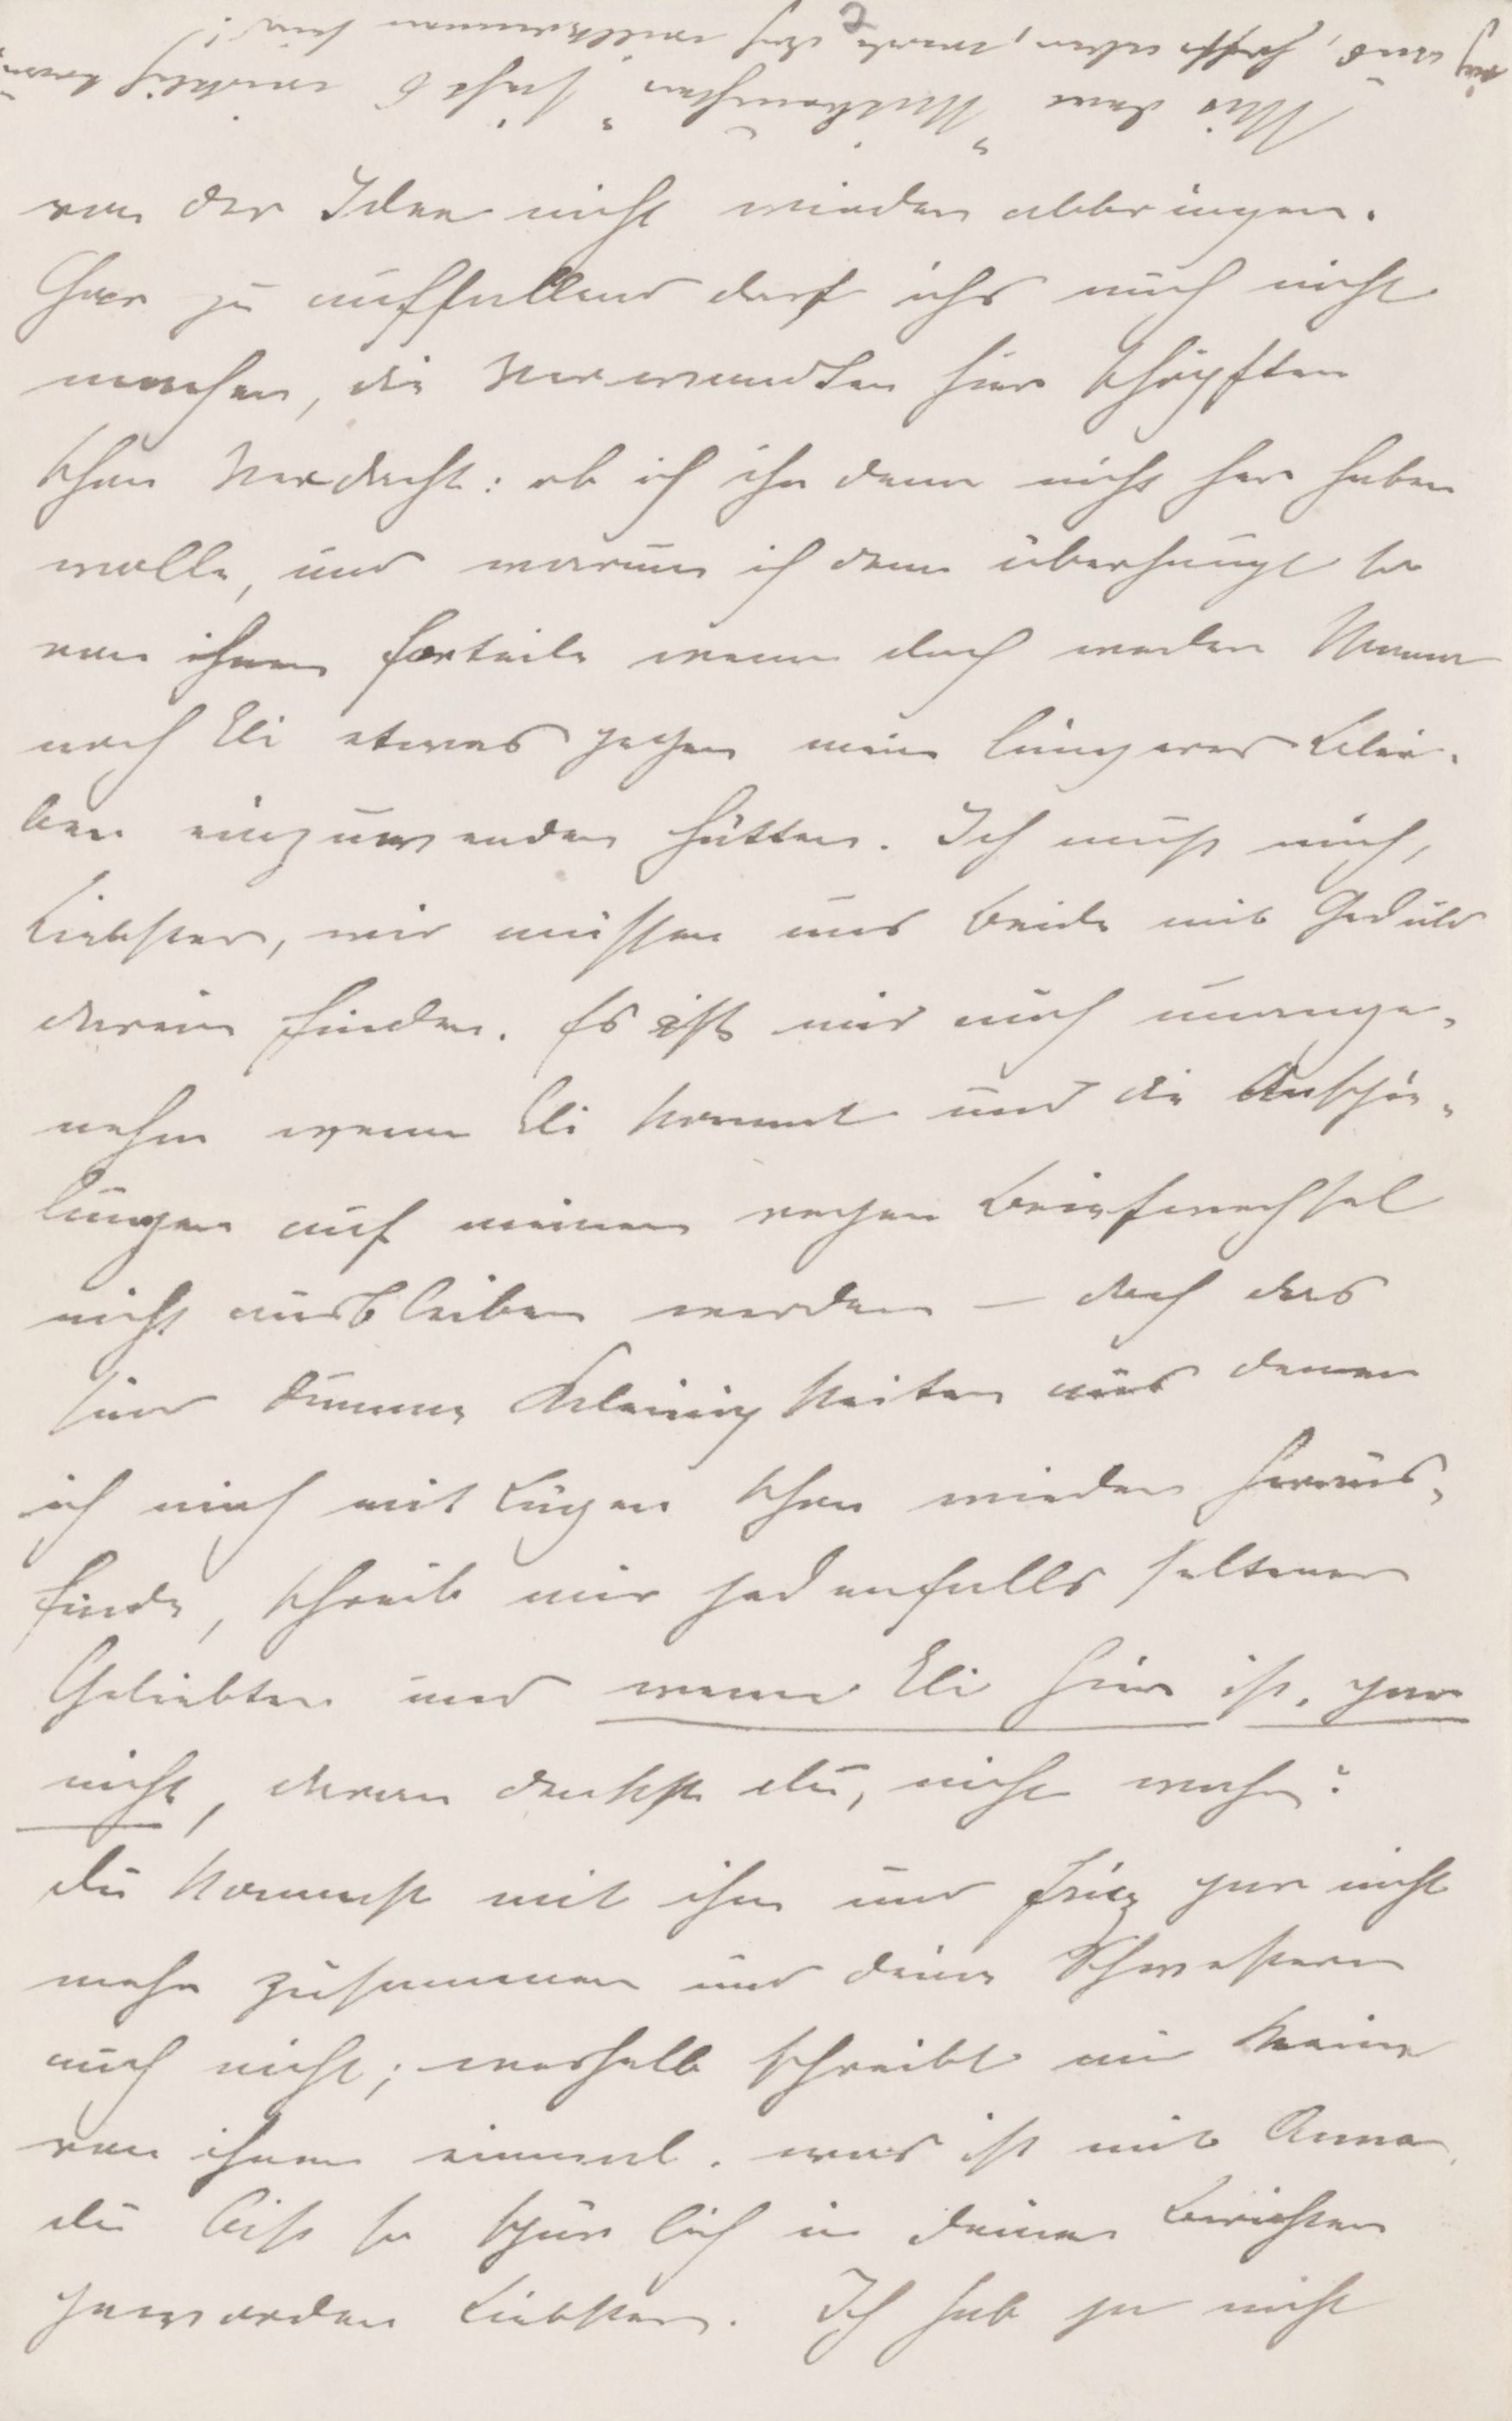 von der Idee nicht wieder abbringen.
Gar zu auffallend darf ichs auch nicht
machen, die Verwandten hier schöpften
schon Verdacht: ob ich ihn denn nicht her haben
wolle, und warum ich denn überhaupt so
von ihnen forteile wenn doch weder Mama
noch Eli etwas gegen mein längeres Blei-
ben einzuwenden hätten. Ich muß mich,
Liebster, wir müssen uns beide mit Geduld
darein finden. Es ist mir auch unange-
nehm wenn Eli kommt und die Anspie-
lungen auf meinen regen Briefwechsel
nicht ausbleiben werden — doch das
sind dumme Kleinigkeiten aus denen
ich mich mit Lügen schon wieder heraus-
finde, schreib mir jedenfalls seltener
Geliebter und wenn Eli hier ist, gar
nicht, daran denkst du, nicht wahr?
du kommst mit ihm und Friz gar nicht
mehr zusammen und deine Schwestern
auch nicht; weshalb schreibt mir keine
von ihnen einmal. was ist mit Anna.
du bist so spärlich in deinen Berichten
geworden Liebster. Ich hab ja nicht
Mit dem "Mitkommen" siehts wirklich
und, hoffe aber, werde doch willkommen sein!